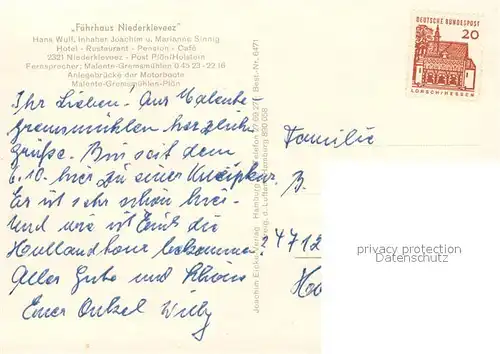 „Fährhaus Niederkleveez"
Hans Wulf, Inhaber Joachim u. Marianne Sinnig
Hotel - Restaurant - Pension - Café
2321 Niederkleveez - Post Plön/Holstein
Fernsprecher: Malente-Gremsmühlen 0 45 23 - 22 16
Anlegebrücke der Motorboote
Malente-Gremsmühlen-Plön
Ihr Lieben! Aus Malente
Gremsmühlen herzliche
Grüße. Bin seit dem
6.10. hier zu einer Kneippkur.
Es ist sehr schön hier.
Und wie ist Euch die
Hollandtour bekommen?
Alles Gute und
Euer Onkel Willy
Joachim Eicke Verlag Hamburg Telefon Best.-Nr. 6471
Hamburg
DEUTSCHE BUNDESPOST
20
LORSCH/HESSEN
Familie
B.
4712
privacy protection
Datenschutz